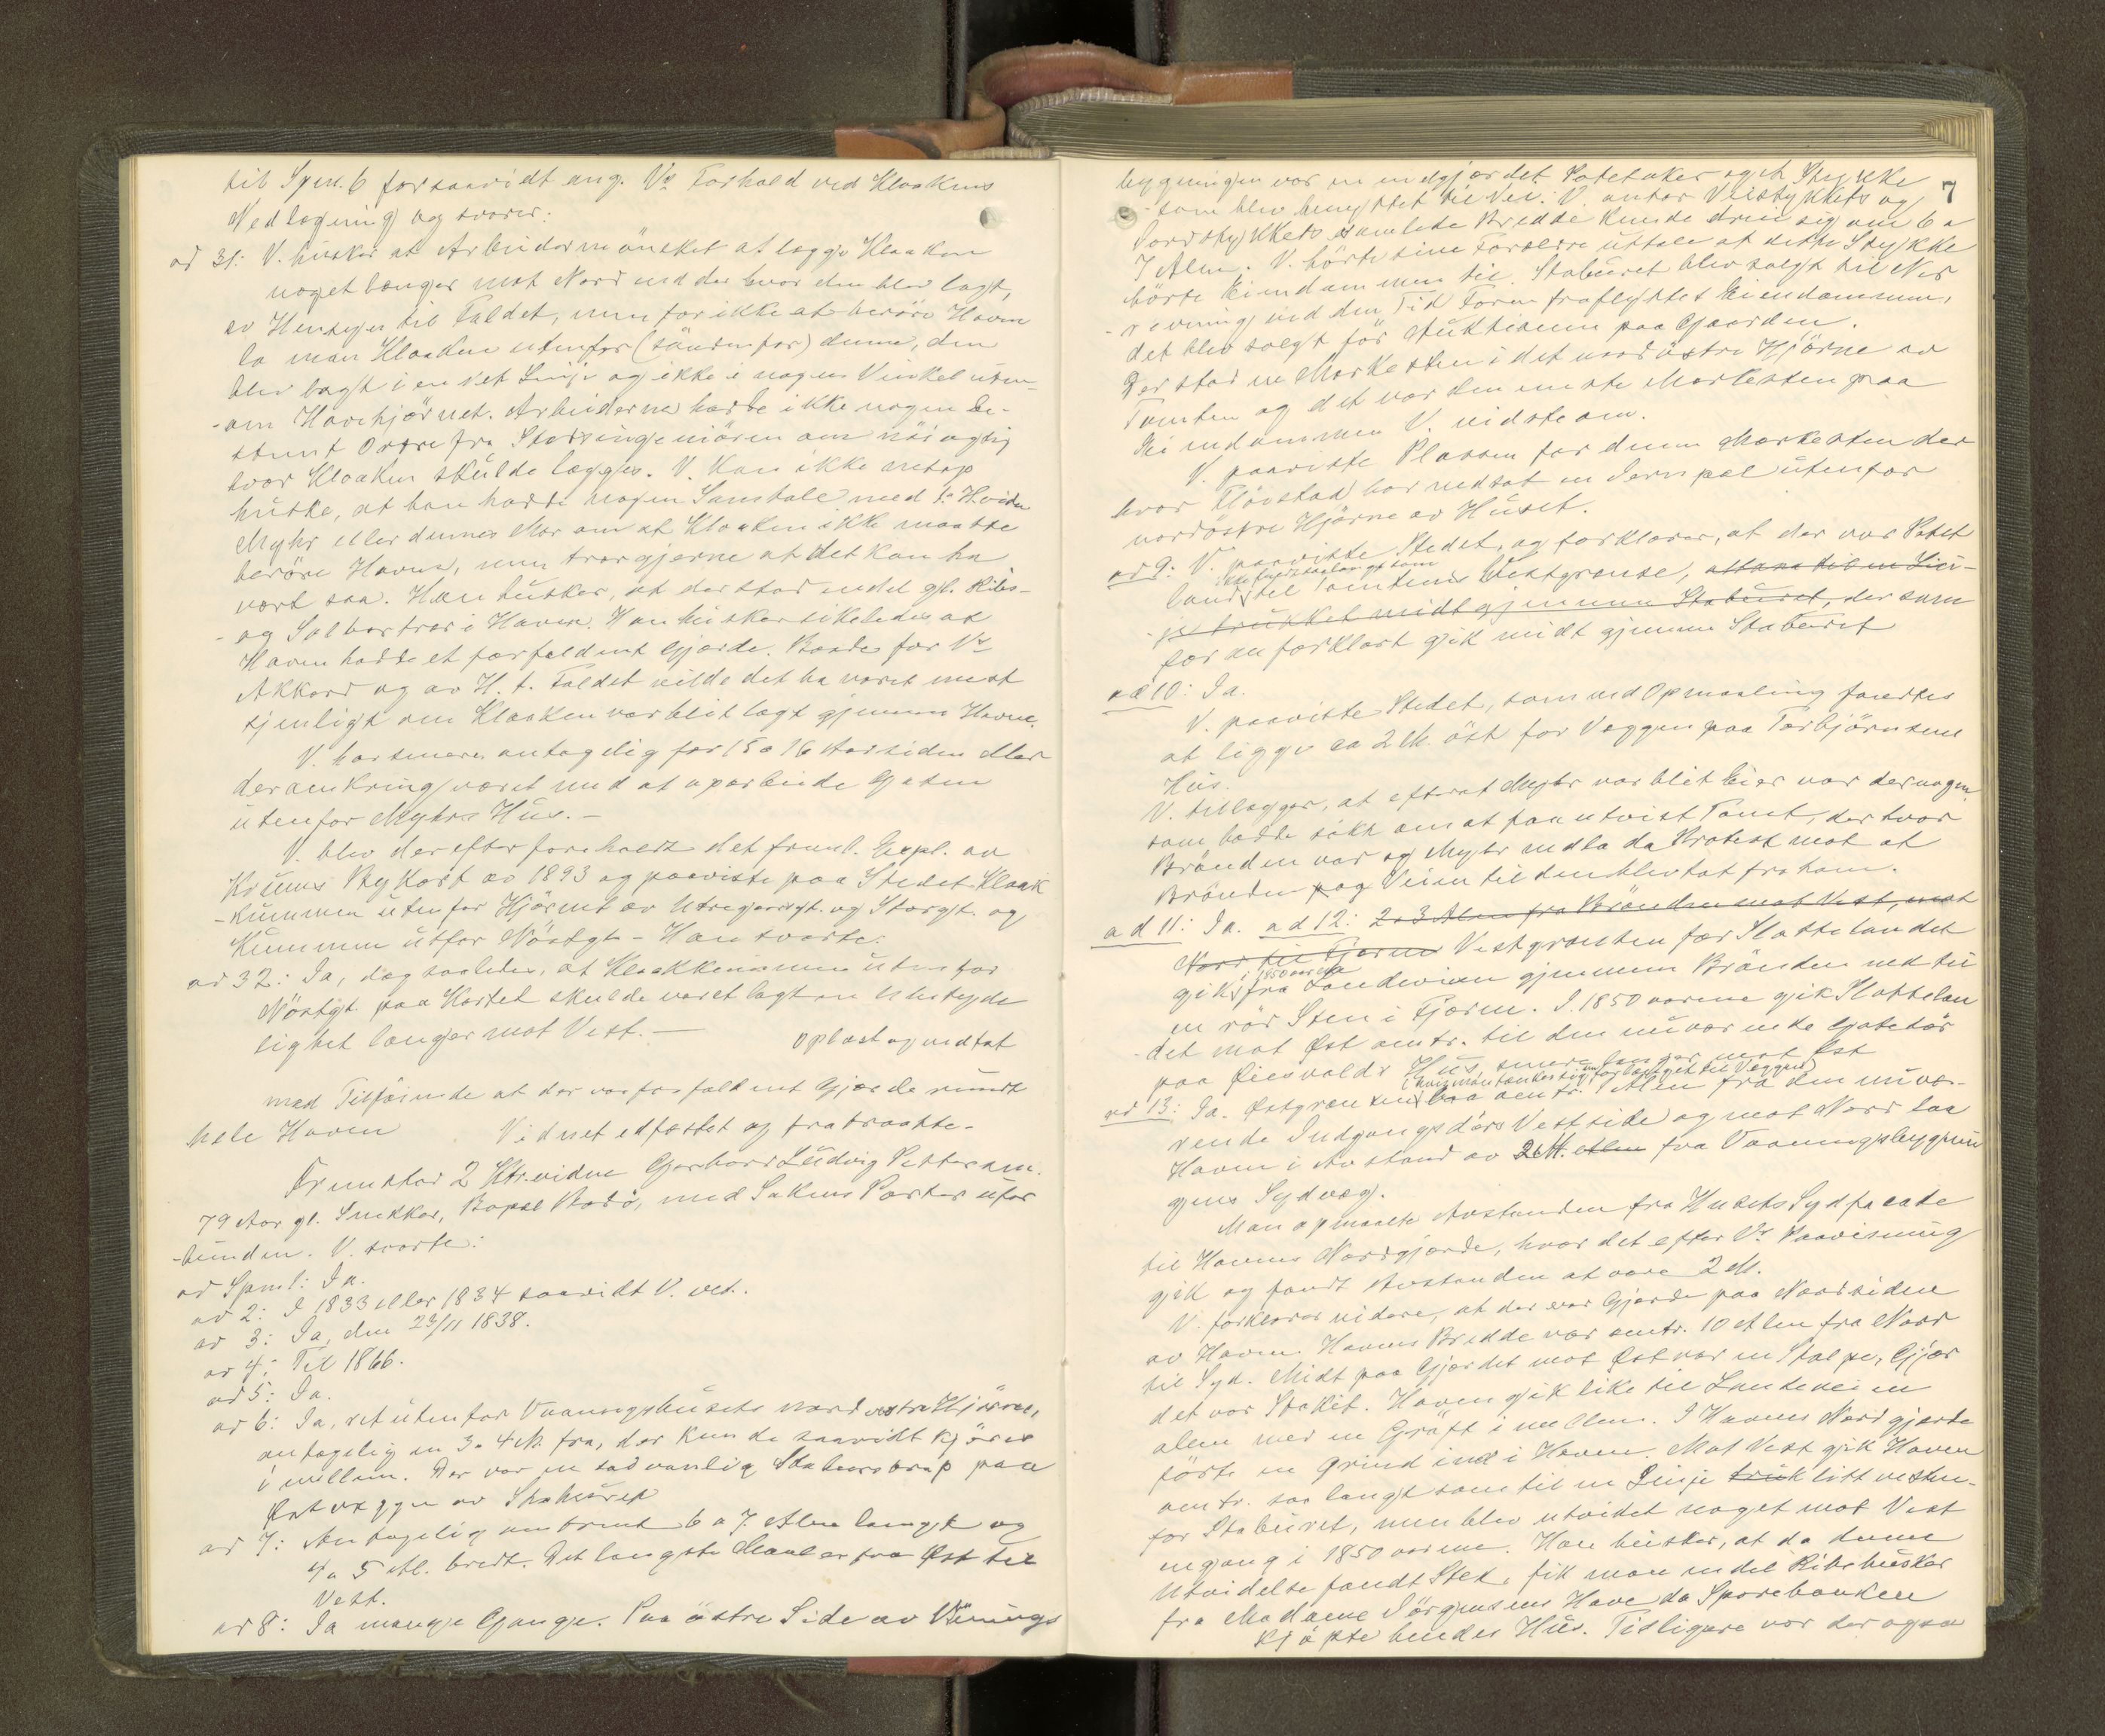 til Spm. 6 forsaavidt ang. Vs Forhold ved Kloakens
Nedlægning og svarer:
ad 31: V. husker at Arbeiderne ønsket at lægge Kloaken
noget længer mot Nord end der hvor den blev lagt,
av Hensyn til Faldet, men for ikke at berøre Haven
la man Kloaken utenfor (søndenfor) denne, den
blev lagt i en ret Linje og ikke i nogen Vinkel uten-
-om Havehjørnet. Arbeiderne hadde ikke nogen be-
stemt Ordre fra Stadsingeniøren om nøiagtig
hvor Kloaken skulde lægges. V. kan ikke netop
huske, at han hadde nogen Samtale med
Myhr eller dennes Mor om at Kloaken ikke maatte
berøre Haven, men tror gjerne at det kan ha
vært saa. Han husker, at der stod endel gl. Ribs-
- og Solbærtrær i Haven. Han husker likeledes at
Haven hadde et forfaldent Gjærde. Baade for Vs
Akkord og av H. t. Faldet vilde det ha været mest
tjenligt om Kloaken var blit lagt gjennem Haven.
V. har senere antagelig for 15 a 16 Aar siden eller
deromkring været med at oparbeide Gaten
utenfor Myhrs Hus. –
V. blev derefter foreholdt det freml. Expl. av
Krums Bykart av 1893 og paaviste paa Stedet Kloak
-kummen utenfor Hjørnet av og Storgt. og
Kummen utfor - Han svarte:
ad 32: Ja, dog saaledes, at Kloakkummen utenfor
paa Kartet skulde været lagt en Ubetyde
lighet længer mot Vest. – Oplæst og vedtat
med Tilføiende at der var forfaldent Gjærde rundt
hele Haven Vidnet edfæstet og fratraadte.
Fremstod 2 Htr. vidne Gerhard Ludvig Pettersen.
79 Aar gl. Snekker, Bopæl Bodø, med Sakens Parter ufor
-bunden. V. svarte:
ad Spm 1: Ja.
ad 2: I 1833 eller 1834 saavidt V. vet.
ad 3: Ja, den 23/11 1838.
ad 4: Til 1866.
ad 5: Ja.
ad 6: Ja, ret utenfor Vaaningshusets nordvestre Hjørne,
antagelig en 3 a 4 M. fra, der kunde saavidt kjøres
imellem. Der var en sædvanlig Staburstrap paa
Østvæggen av Staburet
ad 7: Antagelig omtrent 6 a 7 Alen langt og
4 a 5 Al. bredt. Det længste Maal er fra Øst til
Vest.
ad 8: Ja mange Gange. Paa østre Side av Vånings
7
bygningen var en indgjærdet Potetaker og et Stykke
som blev benyttet til Vei. V. antar Veistykkets og
Jordstykkets samlede Bredde kunde dreie sig om 6 a
7 Alen. V. hørte sine Forældre uttale at dette Stykke
hørte Eiendommen til. Staburet blev solgt til Ned
-rivning ved den Tid Faren fraflyttet Eiendommen,
det blev solgt før Auktionen paa Gaarden.
Der stod en Merkesten i det nordøstre Hjørne av
Tomten og det var den eneste Merkesten paa
Eiendommen V. vidste om.
V. paaviste Plassen for denne Merkesten der
hvor Fløvstad har nedsat en Jernpæl utenfor
nordøstre Hjørne av Huset.
ad 9: V. paaviste Stedet, og forklarer, at der var Potet
land til Tomtens Vestgrænse, altsaa til en Lin-
je trukket midt gjennem Staburet, der som
før en forklart gik midt gjennem Staburet
ad 10: Ja.
V. paaviste Stedet, som ved Opmaaling fandtes
at ligge ca 2 M. øst for Væggen paa Torbjørnsens
Hus.
V. tillægger, at efterat Myhr var blit Eier var der nogen,
som hadde søkt om at faa utvist Tomt, der hvor
Brønden var og Myhr nedla da Protest mot at
Brønden og Veien til den blev tat fra ham.
ad 11: Ja. ad 12: 2 a 3 Alen fra Brønden mot Vest, mot
Nord til Fjæren Vestgrænsen for Slottelandet
gik i 1850 aarene fra Landeveien gjennem Brønden ned til
en rør Sten i Fjæren. I 1850 aarene gik Slottelan
-det mot Øst omtr. til den nuværende Gatedør
paa Øiesvolds Hus, senere længer mot Øst
ad 13: Ja. Østgrænsen (hvis man tænker sig den forlænget til Væggen) laa omtr. 1 Alen fra den nuvæ-
rende Indgangsdørs Vestside og mot Nord laa
Haven i Avstand av 2 M. Alen fra Vaaningsbygnin
gens Sydvæg.
Man opmaalte Avstanden fra Husets Sydfacade
til Havens Nordgjærde, hvor det efter Vs Paavisning
gik og fandt Avstanden at være 2 M.
V. forklarer videre, at der var Gjærde paa Nordsiden
av Haven. Havens Bredde var omtr. 10 Alen fra Nord
til Syd. Midt paa Gjærdet mot Øst var en Stolpe, Gjær
det var Stakit. Haven gik like til Landeveien
alene med en Grøft imellem. I Havens Nordgjærde
førte en Grind ind i Haven. Mot Vest gik Haven
omtr. saa langt som til en Linje truk litt vesten-
for Staburet, men blev utvidet noget mot Vest
engang i 1850 aarene. Han husker, at da denne
Utvidelse fandt Sted, fik man endel Ribsbusker
fra Madame Jørgensens Have da Sparebanken
kjøpte hendes Hus. Tidligere var der ogsaa